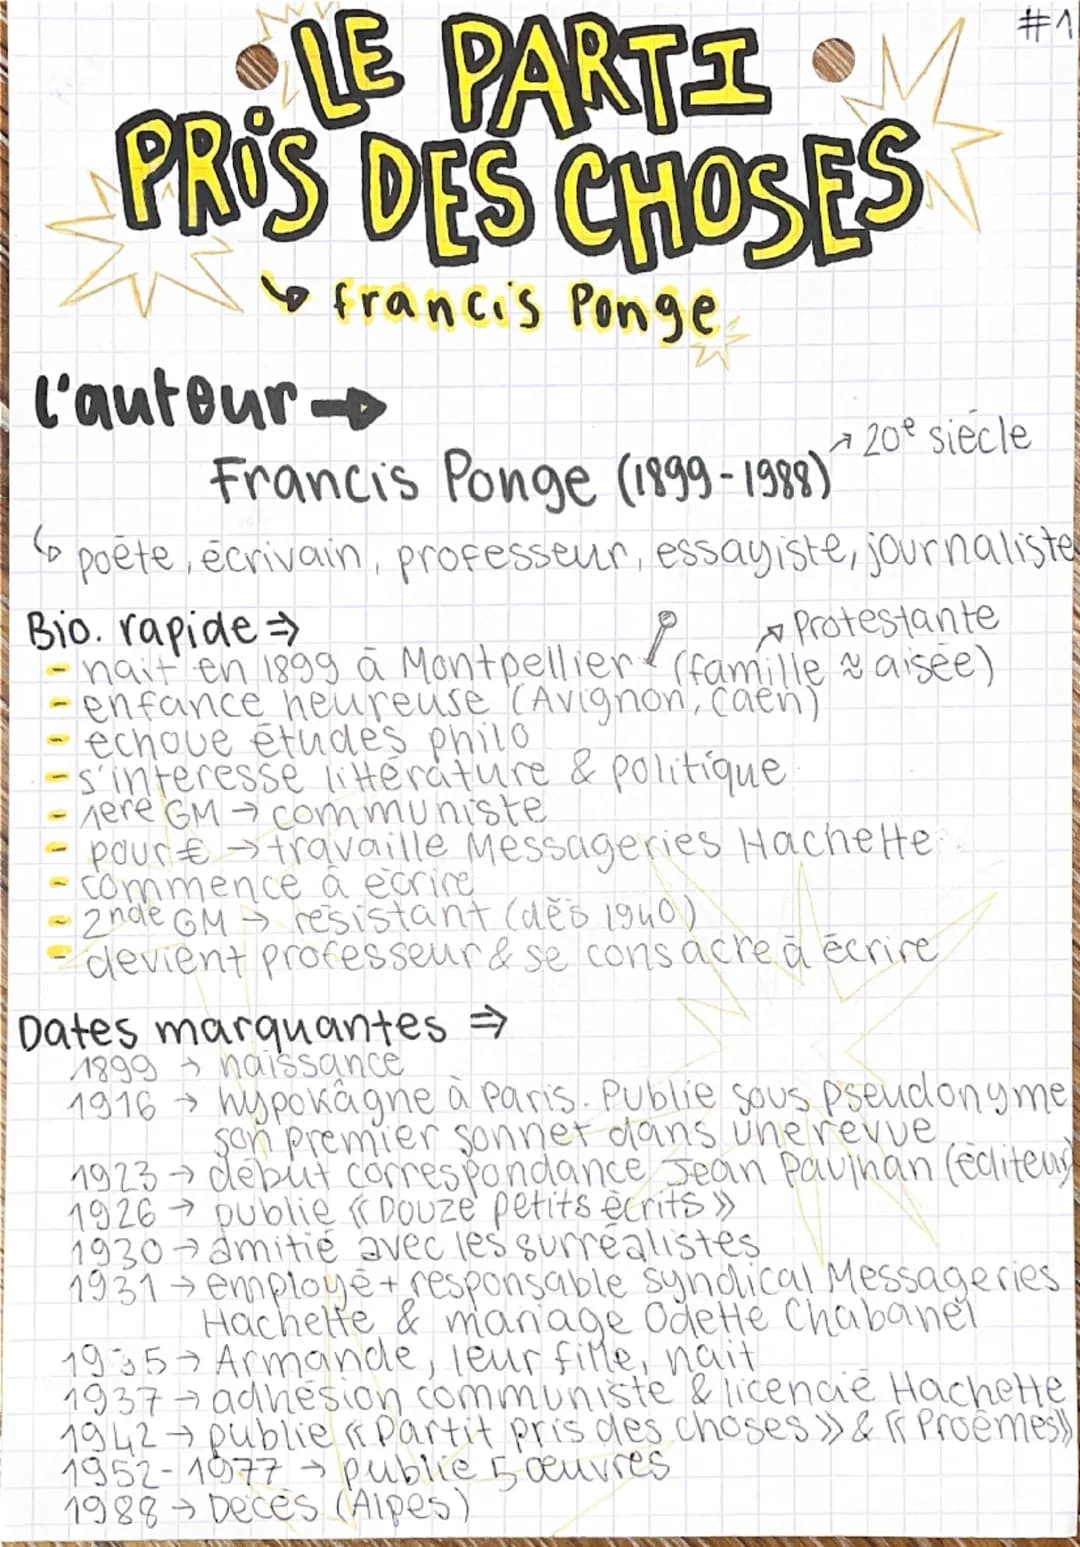 #1
LE PARTI
PRiS DES CHOSES
↳ francis Ponge
l'auteur →
Francis Ponge (1899-1988) ↗ 20e siècle
↳ poète, écrivain, professeur, essayiste, journaliste
Bio. rapide ⇒
↗ Protestante
- nait en 1899 à Montpellier (famille ≈ aisée)
- enfance heureuse (Avignon, Caen)
- echoue études philo
- s'interesse littérature & politique
- 1ere GM → communiste
- pour € → travaille Messageries Hachette
- commence à écrire
- 2nde GM → résistant (dès 1940)
- devient professeur & se consacre à écrire
Dates marquantes ⇒
1899 → naissance
1916 → hypokâgne à Paris. Publie sous pseudonyme
son premier sonnet dans une revue
1923 → début correspondance Jean Paulhan (éditeur)
1926 → publie « Douze petits écrits »
1930 → amitié avec les surréalistes
1931 → employé + responsable syndical Messageries
Hachette & mariage Odette Chabanel
1935 → Armande, leur fille, nait
1937 → adhésion communiste & licencié Hachette
1942 → publie « Partit pris des choses » & « Proèmes »
1952-1977 → publie 5 œuvres
1988 → Décès (Alpes)